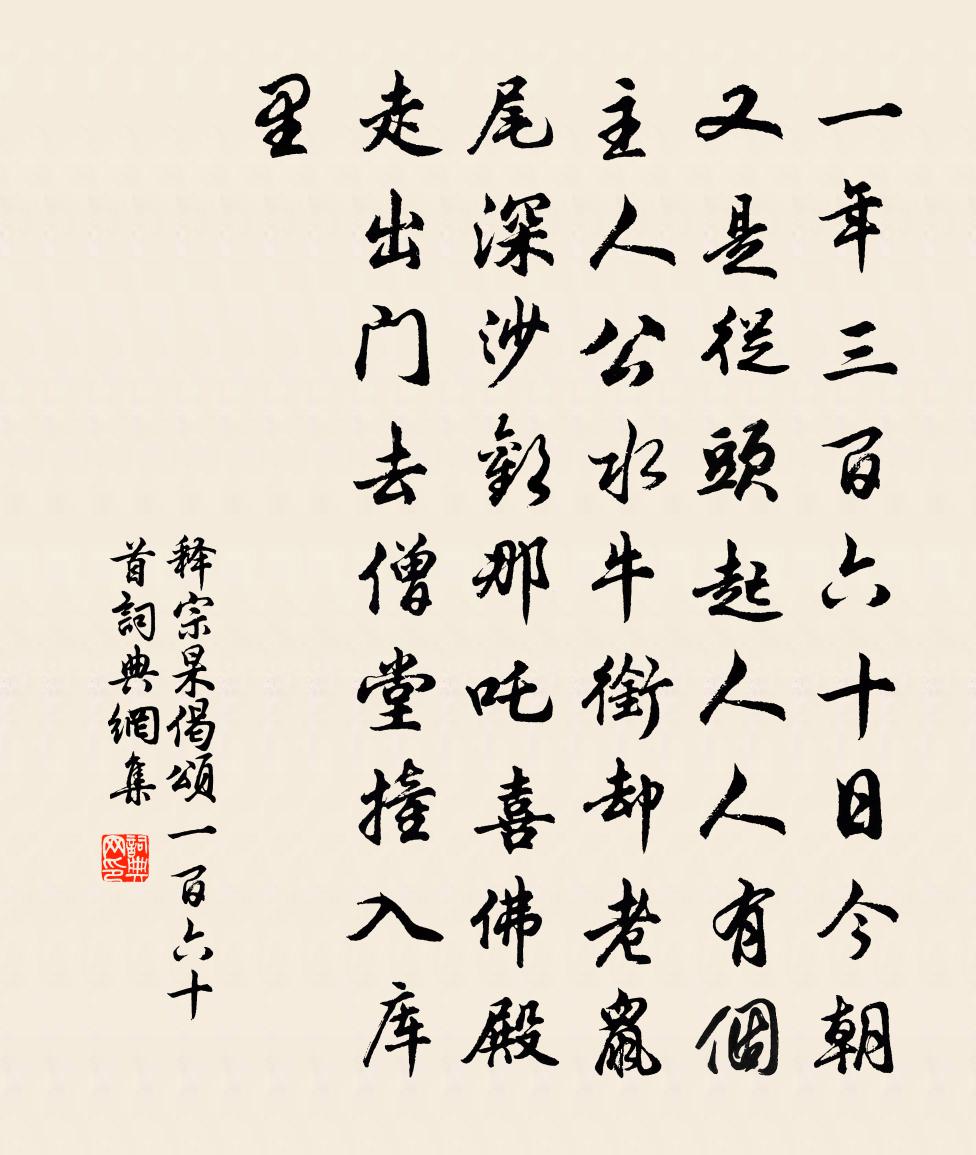 一年三百六十日今朝
又是從頭起人人有個
主人公水牛銜却老鼠
尾深沙勸那吒喜佛殿
走出门去僧堂撞入库
里
释宗杲偈頌一百六十
首詞典網集
詞典网印